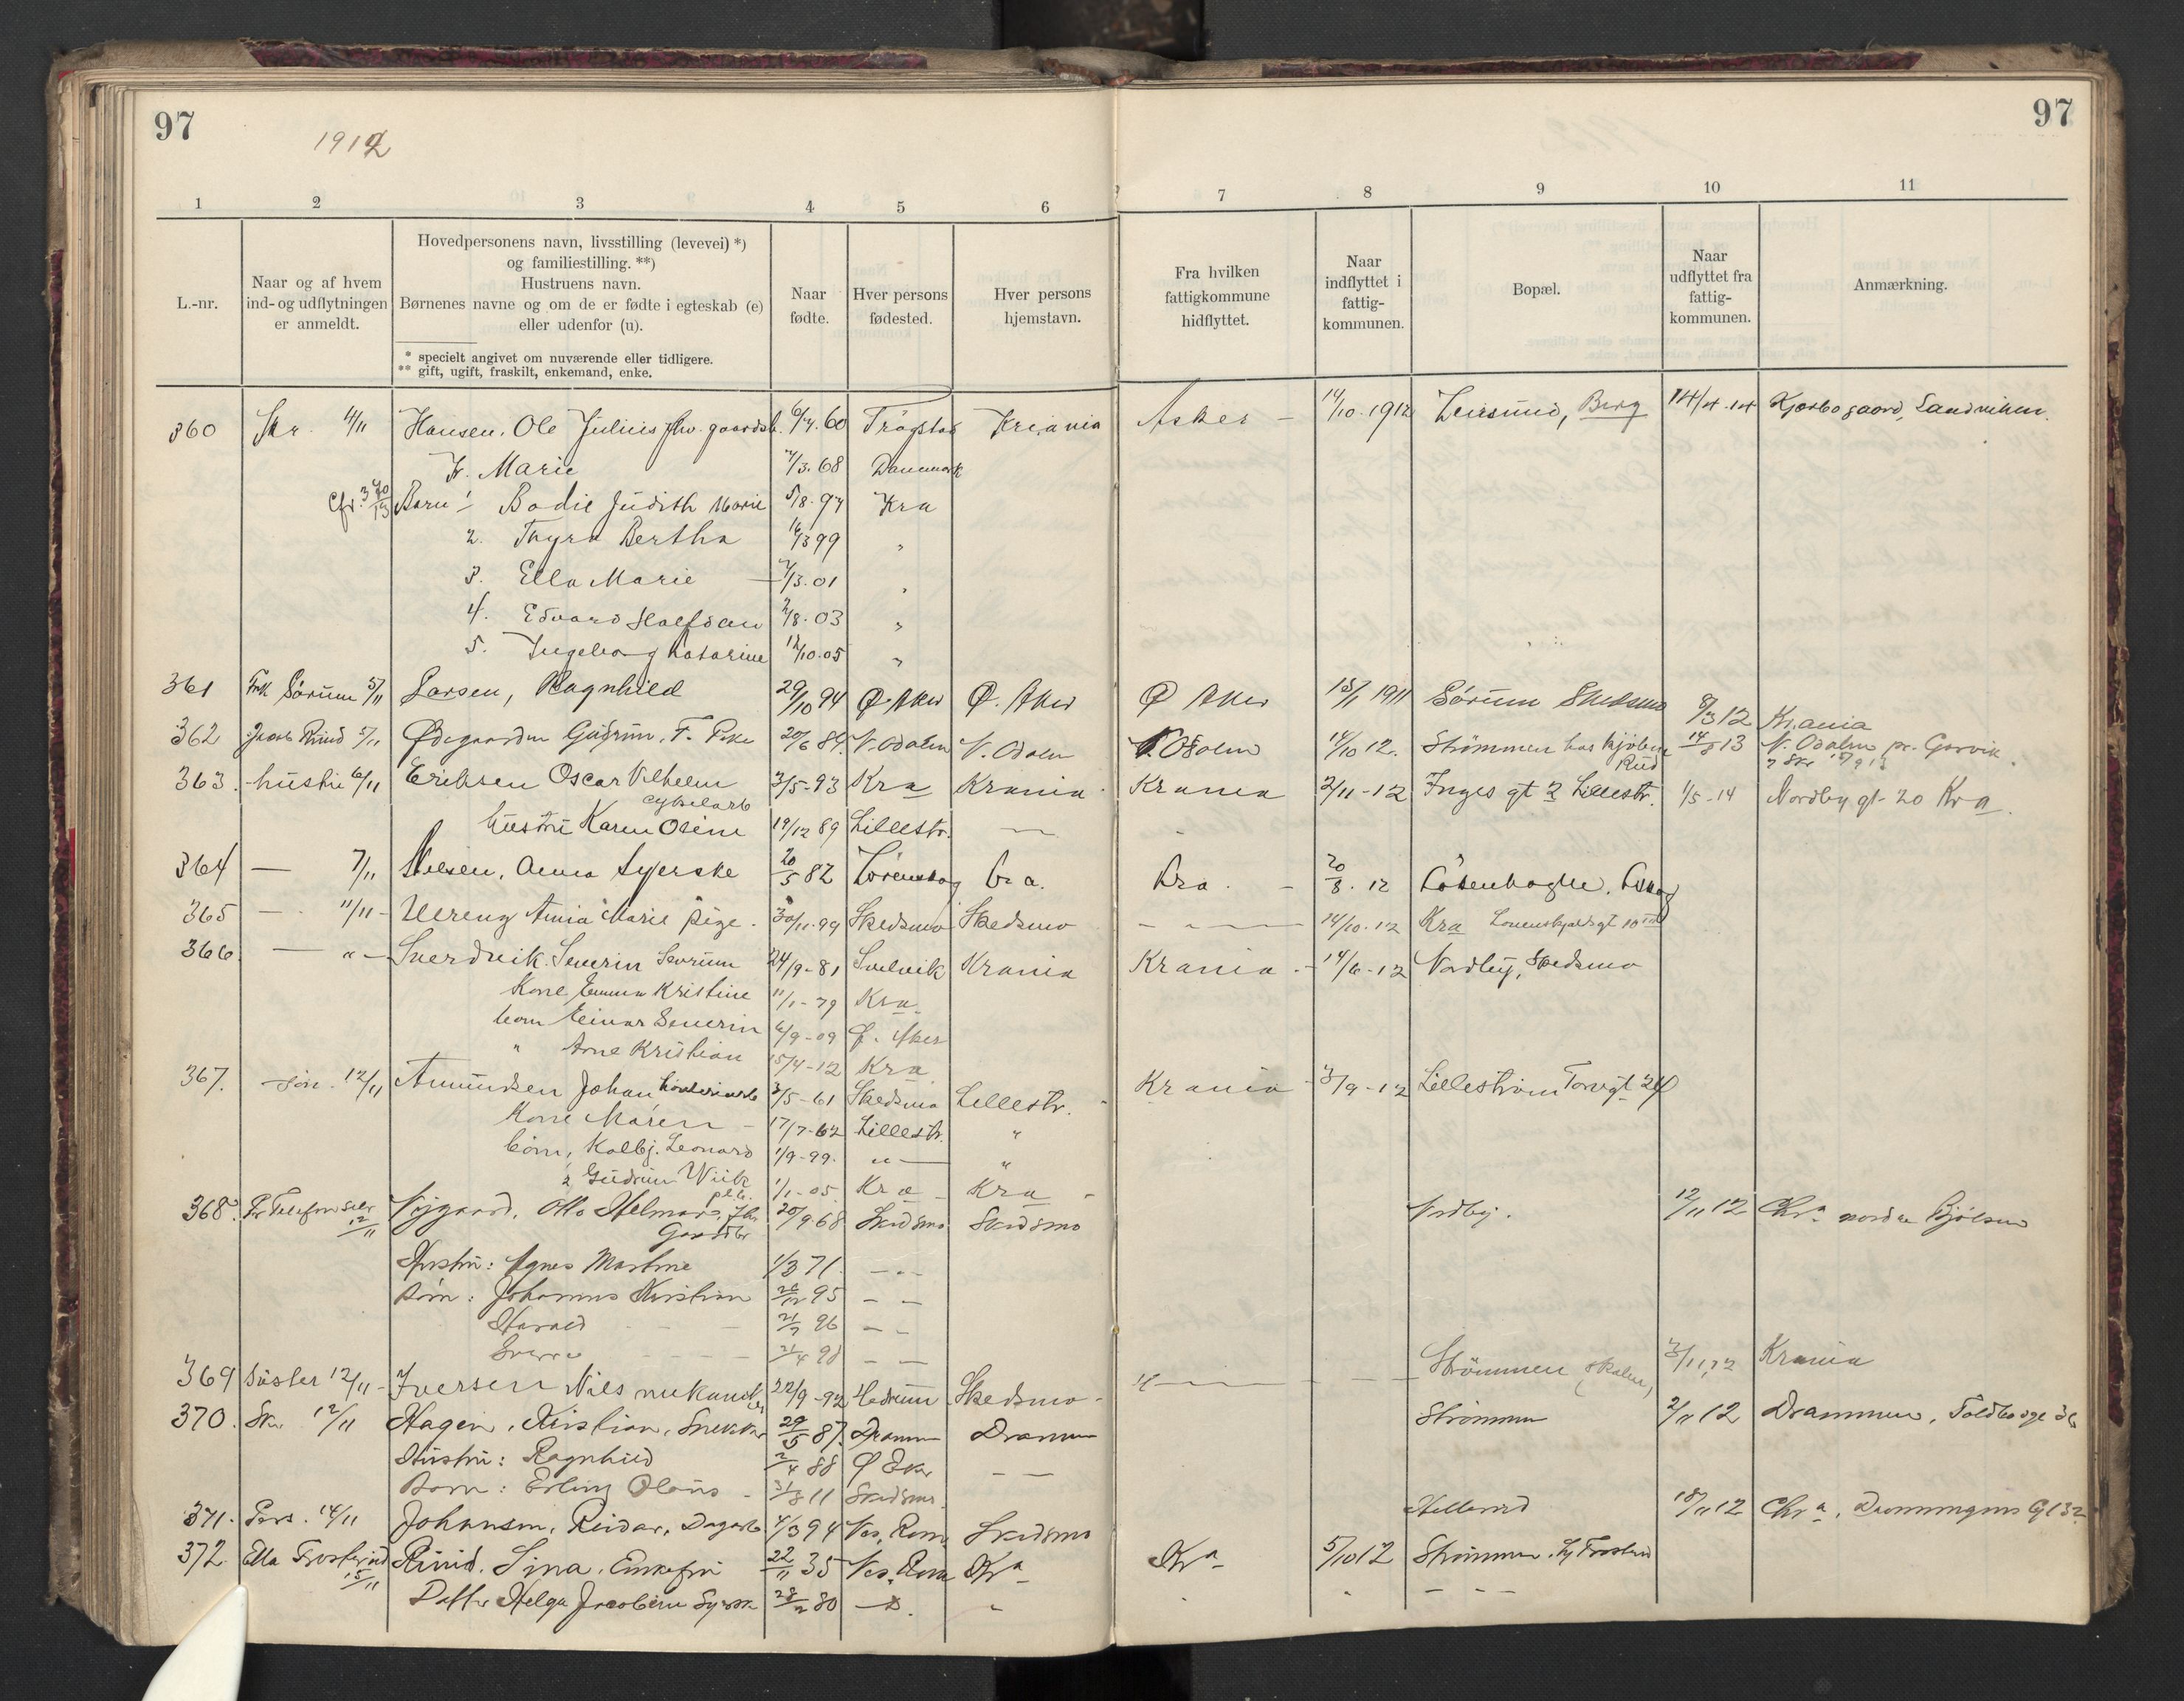 97
97
1912
1 2 3 4 5 6 7 8 9 10 11
L.-nr.
Naar og af hvem
ind- og udflytningen
er anmeldt.
Hovedpersonens navn, livsstilling (levevei) *)
og familiestilling. **)
Hustruens navn.
Børnenes navne og om de er fødte i egteskab (e)
eller udenfor (u).
* specielt angivet om nuværende eller tidligere.
** gift, ugift, fraskilt, enkemand, enke.
Naar
fødte.
Hver persons
fødested.
Hver persons
hjemstavn.
Fra hvilken
fattigkommune
hidflyttet.
Naar
indflyttet i
fattig-
kommunen.
Bopæl.
Naar
udflyttet fra
fattig-
kommunen.
Anmærkning.
360 Skr. 4/11 Hansen, Ole Julius fhv. gaardsb. 6/7.60 Trøgstad Kriania Asker - 14/10.1912 Leirsund, Berg 14/4.14 Kjørbo gaard, Sandviken.
Fr. Marie 7/3.68 Danmark
Cfr. 340/13 Barn 1 Bodil Judith Marie 5/8.97 Kra
2. Thyra Bertha 16/3 99 "
3. Ella Marie 7/3.01 "
4. Edvard Halfdan 2/8.03 "
5. Ingeborg Katarine 12/10.05 "
361 Frk Sørum 5/11 Larsen, Ragnhild 29/10 94 Ø. Aker Ø. Aker Ø Aker 15/1 1911 Sørum Skedsmo 8/3 12 Krania
362 Jacob Ruud 5/11 Ødegaarden Gudrun, T. Pike 20/6 89. N. Odalen N. Odalen N. Odalen 14/10 12. Strømmen hos Kjøbm Rud 14/8 13 N. Odalen pr. Garvik
363. hustru 6/11 Eriksen Oscar Vilhelm cykelarb 3/5-93 Kra Krania Krania 2/11-12 Inges gt 2 Lillestr. 1/5-14 Nordby gt- 20 Kra.
hustru Karen Oline 19/12 89 Lillestr. — -
364 — 7/11 Nielsen, Anna Syerske 20/5 82 Lørenskog Kra. Kra. - 20/8.12
365 — 11/11 - Ullreng Anna Marie pige. 30/11-99 Skedsmo Skedsmo - " — 14/10-12 Kra Løvenskjoldsgt 10 III
366. — " - Sverdvik. Severin Severin 24/9-81 Svelvik Krania Krania - 14/6-12 Nordby, Skedsmo
Kone Emma Kristine 11/1-79 Kra.
barn Einar Severin 6/9-09 Ø. Aker
" Arne Kristian 15/4-12 Kra
367. søn. 12/11 Amundsen Johan 3/5-61 Skedsmo Lillestr. Krania - 3/9-12 Lillestrøm Torvgt 24
Kone Maren - 17/7-62 Lillestr. "
børn, Kolbj. Leonard 1/9-99. " — "
2 Gudrun Wiik pl.b. 1/1-05. Kra - Kra -
368. Pr Telefon 12/11 Nygaard, Otto Helmar, fhv. Gaardbr 20/9 68 Skedsmo Skedsmo Nordby. 12/11 12 Chra nordre Bjølsen
Hustru: Agnes Martine 1/3 71. — " —
Børn: Johannes Kristian 26/12 95 — —
Harald - - - 21/7 96 — —
Sverre - - - 21/4 98 — —
369 Søster 12/11 - Iversen Nils 22/9-92 Hedrum Skedsmo - " — - - - Strømmen (Skolen) 3/11 12 Krania
370. Skr 12/11 Hagen, Kristian, Snekker 29/5 87. Drammen Drammen Strømmen 2/11 12 Drammen, Toldbodgt 36
Hustru: Ragnhild 2/4 88 Ø Eker — —
Barn: Erling Olaus - 31/8 11 Skedsmo.
371. Pers. 14/11 Johansen, Reidar, Dagarb 4/3 94 Nes, Rom Skedsmo Hellerud 18/11 12 Chra, Dronningens Gt 32
372. Ella Frosterud 15/11 Ruud, Lina, Enkefru 22/11 35 Nes, Rom Kra Kra 5/10 12 Strømmen,
Datter Helga Jacobine Syerske 28/2 80 — " - - - -